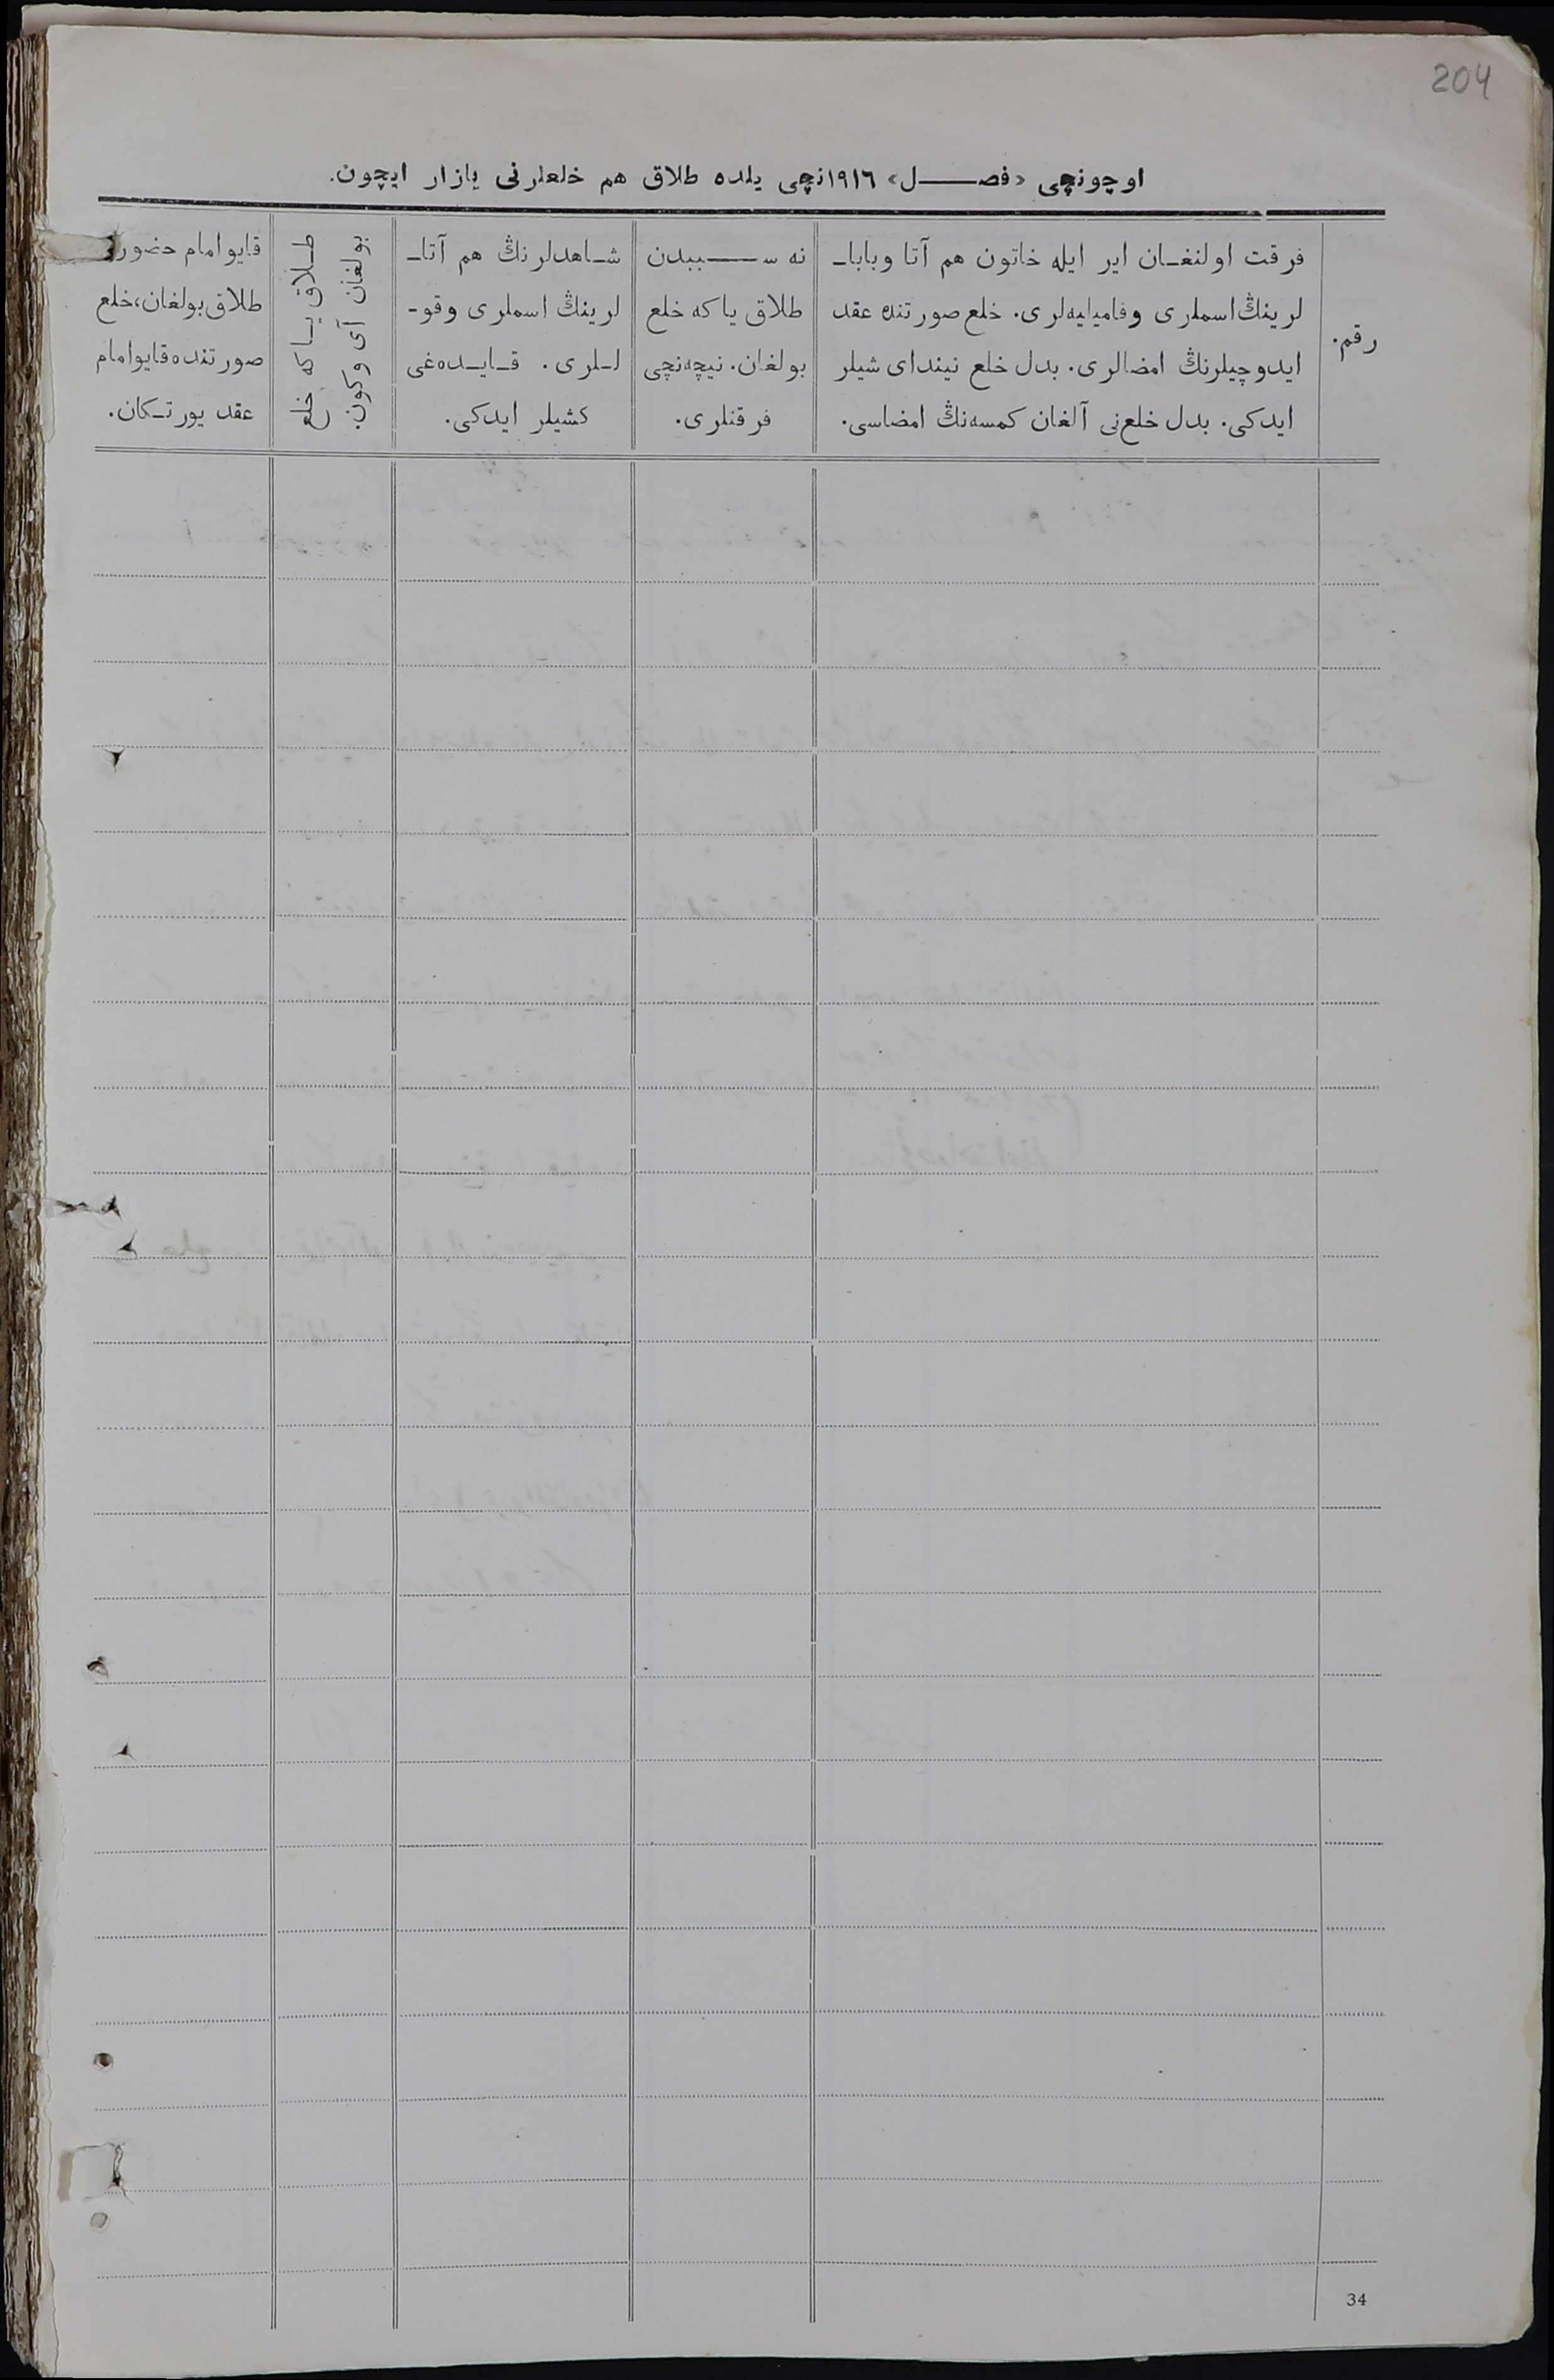 204
اوچونچی «فصـــل» ١٩١٦نچی یلده طلاق هم خلعلرنی یازار ایچون.
رقم.
فرقت اولنغـان ایر ایله خاتون هم آتا وبابا‌ـ
لرینڭ اسملری وفامیلیه‌لری. خلع صورتنده عقد
ایدوچیلرنڭ امضالری. بدل خلع نیندای شیلر
ایدکی. بدل خلع‌نی آلغان کمسه‌نڭ امضاسی.
نه ســـببدن
طلاق یا که خلع
بولغان. نیچه‌نچی
فرقتلری.
شـاهدلرنڭ هم آتا‌ـ
لرینڭ اسملری وقو‌ـ
لـلری. قـایـده‌غی
کشیلر ایدکی.
طـلاق یـا که خلع
بولغان آی وکون.
قایو امام حضورنده
طلاق بولغان، خلع
صورتنده قایو امام
عقد یورتـکان.
34